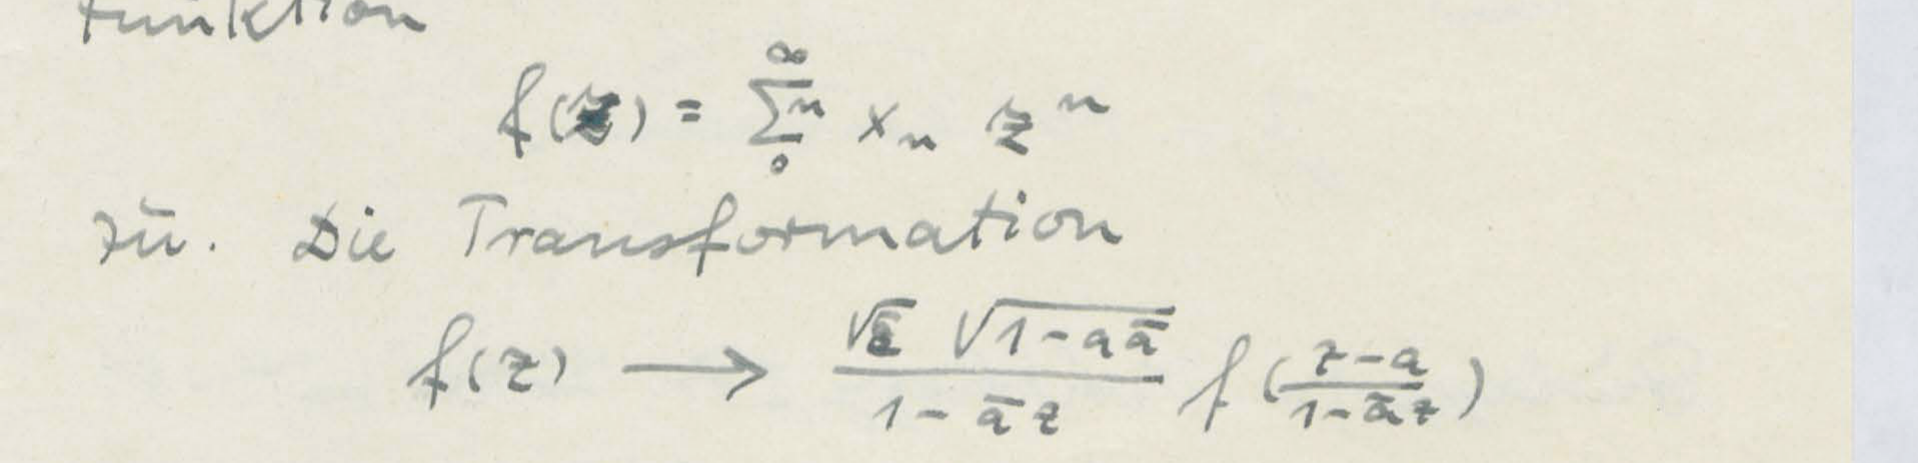 Funktion
f(z) = ∑ₙ₌₀^∞ xₙ zⁿ
zu. Die Transformation
f(z) ⟶ √ε √(1-aā) / (1-āz) f((z-a)/(1-āz))